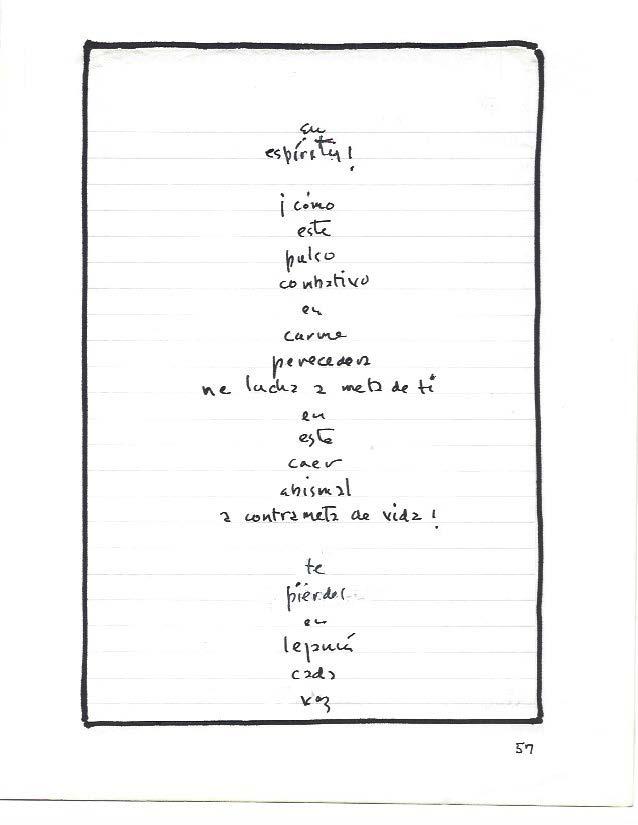 en
espíritu!
¡cómo
este
pulso
combativo
en
carne
perecedera
me lucha a meta de ti
en
este
caer
abismal
a contrameta de vida!
te
piérdes
en
lejanía
cada
vez
57